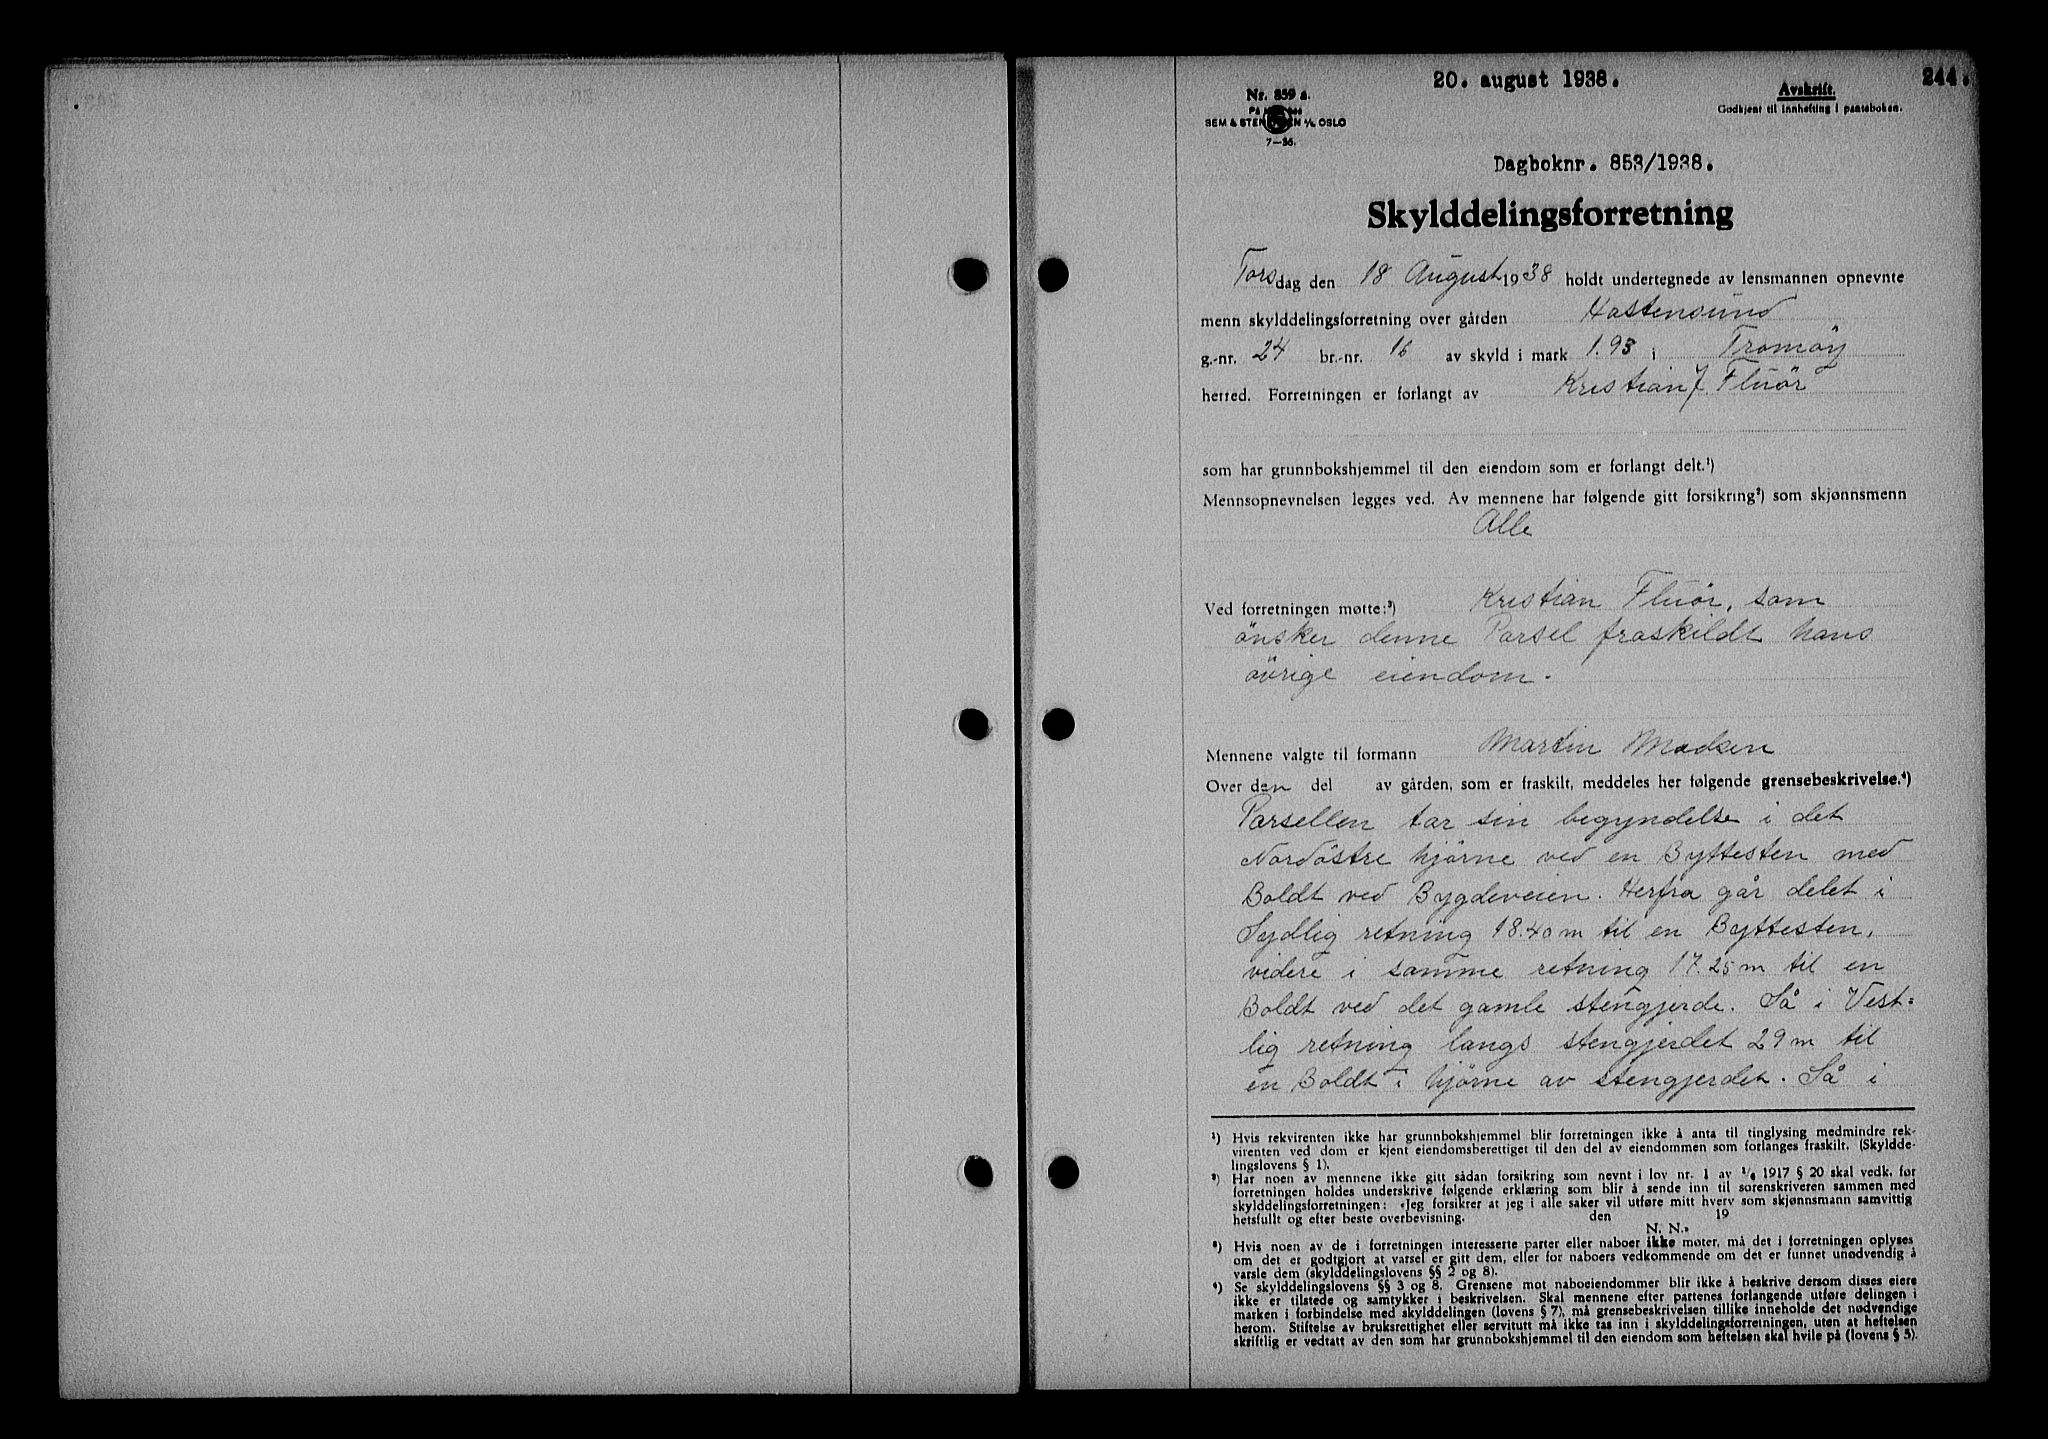 20. august 1938.
244.
Nr. 859 a.
SEM & STENERSEN A/S OSLO
7—35.
Avskrift.
Godkjent til innhefting i pantebøken.
Dagboknr. 853/1938.
Skylddelingsforretning
Torsdag den 18 August 1938 holdt undertegnede av lensmannen opnevnte
menn skylddelingsforretning over gården Hastensund
g.-nr. 24 br.-nr. 16 av skyld i mark 1.93 i Tromöy
herred. Forretningen er forlangt av Kristian J. Fluör
som har grunnbokshjemmel til den eiendom som er forlangt delt.¹)
Mennsopnevnelsen legges ved. Av mennene har følgende gitt forsikring²) som skjønnsmenn
Alle
Ved forretningen møtte:³) Kristian Fluör, som
önsker denne Parsel fraskildt hans
övrige eiendom.
Mennene valgte til formann Martin Madsen
Over den del av gården, som er fraskilt, meddeles her følgende grensebeskrivelse.⁴)
Parsellen tar sin begyndelse i det
Nordöstre hjörne ved en Byttesten med
Boldt ved Bygdeveien. Herfra går delet i
Sydlig retning 18.40 m til en Byttesten,
videre i samme retning 17.25 m til en
Boldt ved det gamle stengjerde. Så i Vest=
lig retning langs stengjerdet 29 m til
en Boldt i hjörne av stengjerdet. Så i
¹) Hvis rekvirenten ikke har grunnbokshjemmel blir forretningen ikke å anta til tinglysing medmindre rek-
virenten ved dom er kjent eiendomsberettiget til den del av eiendommen som forlanges fraskilt. (Skyldde-
lingslovens § 1).
²) Har noen av mennene ikke gitt sådan forsikring som nevnt i lov nr. 1 av 1/6 1917 § 20 skal vedk. før
forretningen holdes underskrive følgende erklæring som blir å sende inn til sorenskriveren sammen med
skylddelingsforretningen: «Jeg forsikrer at jeg i alle saker vil utføre mitt hverv som skjønnsmann samvittig
hetsfullt og efter beste overbevisning. den 19
N. N.»
³) Hvis noen av de i forretningen interesserte parter eller naboer ikke møter, må det i forretningen oplyses
om det er godtgjort at varsel er gitt dem, eller for naboers vedkommende om det er funnet unødvendig å
varsle dem (skylddelingslovens §§ 2 og 8).
⁴) Se skylddelingslovens §§ 3 og 8. Grensene mot naboeiendommer blir ikke å beskrive dersom disses eiere
ikke er tilstede og samtykker i beskrivelsen. Skal mennene efter partenes forlangende utføre delingen i
marken i forbindelse med skylddelingen (lovens § 7), må grensebeskrivelsen tillike inneholde det nødvendige
herom. Stiftelse av bruksrettighet eller servitutt må ikke tas inn i skylddelingsforretningen, uten at heftelsen
skriftlig er vedtatt av den som har grunnbokshjemmel til den eiendom som heftelsen skal hvile på (lovens § 5).